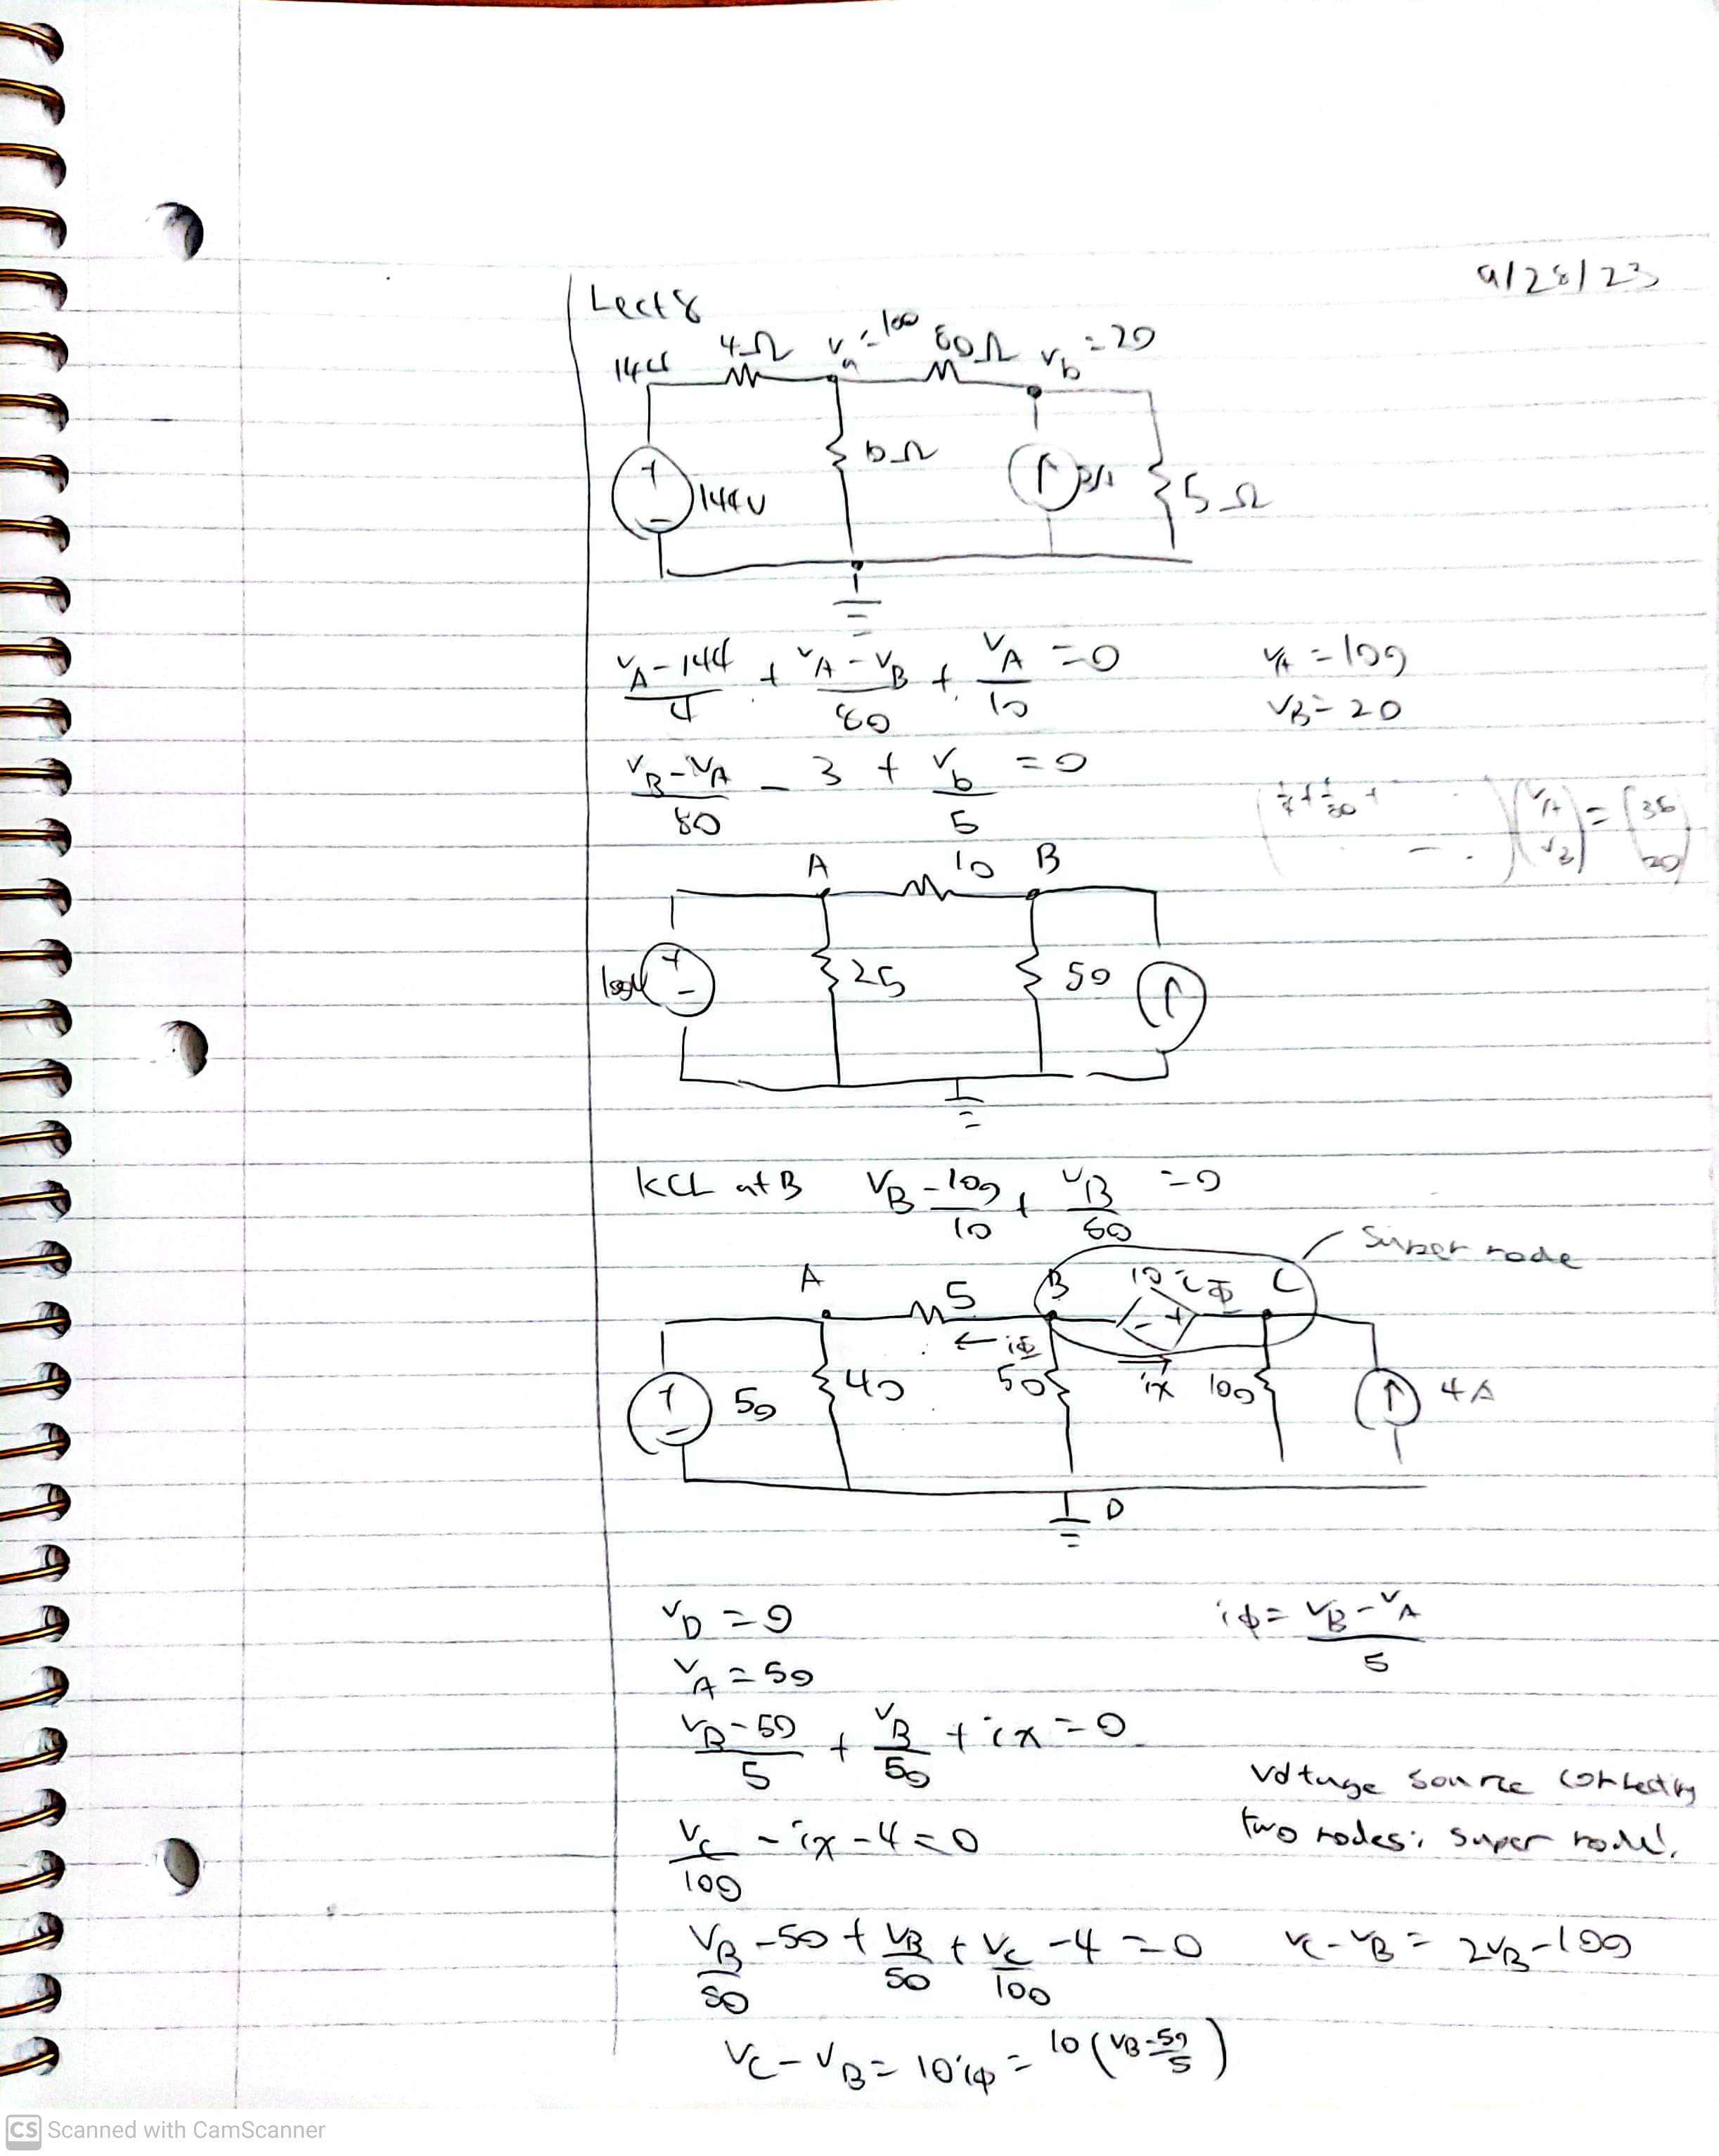 9/28/23
Lect 8
144 4Ω Va = 100 80Ω Vb = 20
+ - 144V 10Ω 3A 5Ω
VA-144/4 + VA-VB/80 + VA/10 = 0 VA = 100
VB = 20
VB-VA/80 - 3 + Vb/5 = 0
1/4 + 1/80 + - . (VA VB) = (36 20)
A 10 B
100V + - 25 50
KCL at B VB-100/10 + VB/50 = 0
Super node
A 5 B 10iΦ C
- +
← iΦ ix
+ - 50 40 50 100 4A
D
VD = 0 iΦ = VB-VA/5
VA = 50
VB-50/5 + VB/50 + ix = 0
Voltage source connecting
two nodes: super node!
VC/100 - ix - 4 = 0
VB-50/50 + VB/50 + VC/100 - 4 = 0 VC-VB = 2VB-100
VC-VB = 10iΦ = 10(VB-50/5)
CS Scanned with CamScanner